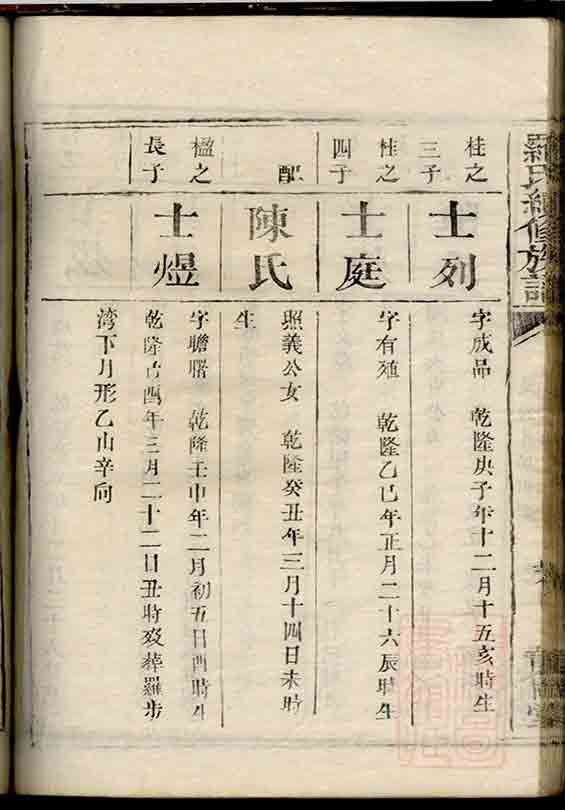 羅氏續修族譜
桂之
三子
士列
字成品 乾隆庚子年十二月十五亥時生
桂之
四子
士庭
字有 乾隆乙巳年正月二十六辰時生
配
陳氏
照義公女 乾隆癸丑年三月十四日未時
生
楹之
長子
士煜
字瞻曙 乾隆壬申年二月初五日酉時生
乾隆己酉年三月二十二日丑時歿葬羅步
湾下月形乙山辛向